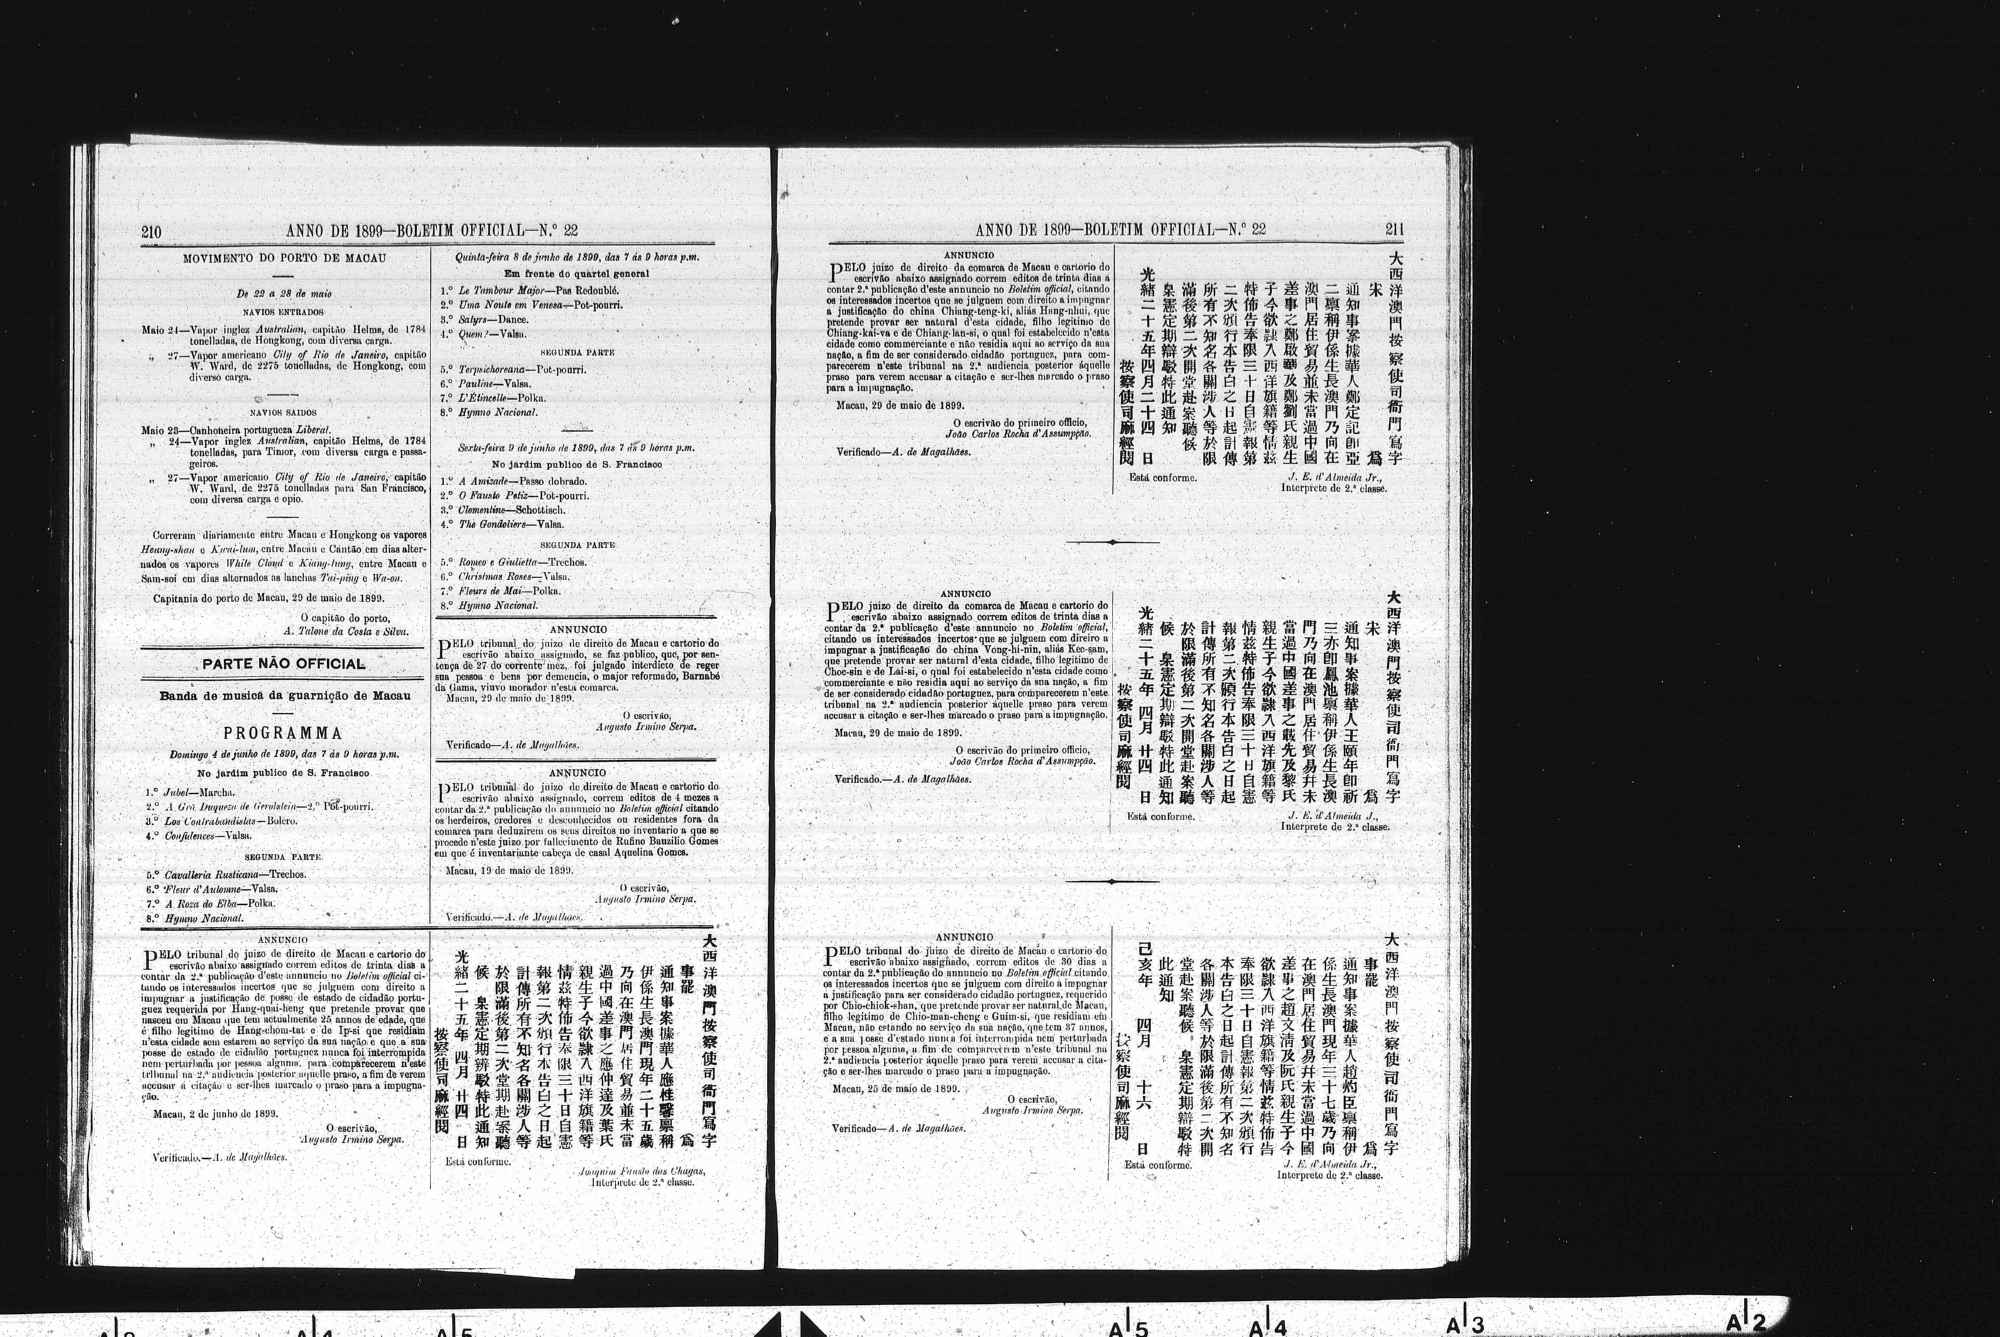 210
ANNO DE 1899—BOLETIM OFFICIAL—N.º 22
MOVIMENTO DO PORTO DE MACAU
De 22 a 28 de maio
NAVIOS ENTRADOS
Maio 24—Vapor inglez Australian, capitão Helms, de 1784
tonelladas, de Hongkong, com diversa carga.
„ 27—Vapor americano City of Rio de Janeiro, capitão
W. Ward, de 2275 tonelladas, de Hongkong, com
diverso carga.
NAVIOS SAIDOS
Maio 23—Canhoneira portugueza Liberal.
„ 24—Vapor inglez Australian, capitão Helms, de 1784
tonelladas, para Timor, com diversa carga e passa-
geiros.
„ 27—Vapor americano City of Rio de Janeiro, capitão
W. Ward, de 2275 tonelladas para San Francisco,
com diversa carga e opio.
Correram diariamente entre Macau e Hongkong os vapores
Heung-shan e Kwai-lum, entre Macau e Cantão em dias alter-
nados os vapores White Cloud e Kiang-tung, entre Macau e
Sam-soi em dias alternados as lanchas Tai-ping e Wa-on.
Capitania do porto de Macau, 29 de maio de 1899.
O capitão do porto,
A. Talone da Costa e Silva.
PARTE NÃO OFFICIAL
Banda de musica da guarnição de Macau
PROGRAMMA
Domingo 4 de junho de 1899, das 7 ás 9 horas p.m.
No jardim publico de S. Francisco
1.º Jubel—Marcha.
2.º A Grã Duqueza de Gerolstein—2.º Pot-pourri.
3.º Los Contrabandistas—Bolero.
4.º Confidences—Valsa.
SEGUNDA PARTE
5.º Cavalleria Rusticana—Trechos.
6.º Fleur d'Automne—Valsa.
7.º A Roza do Elba—Polka.
8.º Hymno Nacional.
Quinta-feira 8 de junho de 1899, das 7 ás 9 horas p.m.
Em frente do quartel general
1.º Le Tambour Major—Pas Redoublé.
2.º Uma Noute em Venesa—Pot-pourri.
3.º Satyrs—Dance.
4.º Quem?—Valsa.
SEGUNDA PARTE
5.º Terpsichoreana—Pot-pourri.
6.º Pauline—Valsa.
7.º L'Étincelle—Polka.
8.º Hymno Nacional.
Sexta-feira 9 de junho de 1899, das 7 ás 9 horas p.m.
No jardim publico de S. Francisco
1.º A Amizade—Passo dobrado.
2.º O Fausto Petiz—Pot-pourri.
3.º Clementine—Schottisch.
4.º The Gondoliers—Valsa.
SEGUNDA PARTE
5.º Romeo e Giulietta—Trechos.
6.º Christmas Roses—Valsa.
7.º Fleurs de Mai—Polka.
8.º Hymno Nacional.
ANNUNCIO
PELO tribunal do juizo de direito de Macau e cartorio do
escrivão abaixo assignado, se faz publico, que, por sen-
tença de 27 do corrente mez, foi julgado interdicto de reger
sua pessoa e bens por demencia, o major reformado, Barnabé
da Gama, viuvo morador n'esta comarca.
Macau, 29 de maio de 1899.
O escrivão,
Augusto Irmino Serpa.
Verificado—A. de Magalhães.
ANNUNCIO
PELO tribunal do juizo de direito de Macau e cartorio do
escrivão abaixo assignado, correm editos de 4 mezes a
contar da 2.ª publicação do annuncio no Boletim official citando
os herdeiros, credores e desconhecidos ou residentes fora da
comarca para deduzirem os seus direitos no inventario a que se
procede n'este juizo por fallecimento de Rufino Bauzilio Gomes
em que é inventariante cabeça de casal Aquelina Gomes.
Macau, 19 de maio de 1899.
O escrivão,
Augusto Irmino Serpa.
Verificado.—A. de Magalhães.
ANNUNCIO
PELO tribunal do juizo de direito de Macau e cartorio do
escrivão abaixo assignado correm editos de trinta dias a
contar da 2.ª publicação d'este annuncio no Boletim official ci-
tando os interessados incertos que se julguem com direito a
impugnar a justificação de posse de estado de cidadão portu-
guez requerida por Hang-quai-heng que pretende provar que
nasceu em Macau que tem actualmente 25 annos de edade, que
é filho legitimo de Hang-chom-tat e de Ip-si que residiam
n'esta cidade sem estarem ao serviço da sua nação e que a sua
posse de estado de cidadão portuguez nunca foi interrompida
nem perturbada por pessoa alguma, para comparecerem n'este
tribunal na 2.ª audiencia posterior aquelle praso, a fim de verem
accusar a citação e ser-lhes marcado o praso para a impugna-
ção.
Macau, 2 de junho de 1899.
O escrivão,
Augusto Irmino Serpa.
Verificado.—A. de Magalhães.
大西洋澳門按察使司衙門寫字
事龍 爲
通知事案據華人應性馨禀稱
伊係生長澳門現年二十五歲
乃向在澳門居住貿易並未當
過中國差事之應仲達及葉氏
親生子今欲隸入西洋旗籍等
情茲特佈告奉限三十日自憲
報第二次頒行本告白之日起
計傳所有不知名各關涉人等
於限滿後第二次堂期赴案聽
候 臬憲定期辨駁特此通知
光緒二十五年 四月 廿四 日
按察使司麻經閱
Está conforme.
Joaquim Fausto das Chagas,
Interprete de 2.ª classe.
ANNO DE 1899—BOLETIM OFFICIAL—N.º 22
211
ANNUNCIO
PELO juizo de direito da comarca de Macau e cartorio do
escrivão abaixo assignado correm editos de trinta dias a
contar 2.ª publicação d'este annuncio no Boletim official, citando
os interessados incertos que se julguem com direito a impugnar
a justificação do china Chiang-teng-ki, aliás Hang-nhui, que
pretende provar ser natural d'esta cidade, filho legitimo de
Chiang-kai-va e de Chiang-lan-si, o qual foi estabelecido n'esta
cidade como commerciante e não residia aqui ao serviço da sua
nação, a fim de ser considerado cidadão portuguez, para com-
parecerem n'este tribunal na 2.ª audiencia posterior áquelle
praso para verem accusar a citação e ser-lhes marcado o praso
para a impugnação.
Macau, 29 de maio de 1899.
O escrivão do primeiro officio,
João Carlos Rocha d'Assumpção.
Verificado—A. de Magalhães.
大西洋澳門按察使司衙門寫字
宋 爲
通知事案據華人鄭定記卽亞
二禀稱伊係生長澳門乃向在
澳門居住貿易並未當過中國
差事之鄭啟華及鄭劉氏親生
子今欲隸入西洋旗籍等情茲
特佈告奉限三十日自憲報第
二次頒行本告白之日起計傳
所有不知名各關涉人等於限
滿後第二次開堂赴案聽候
臬憲定期辯駁特此通知
光緒二十五年四月二十四 日
按察使司麻經閱
Está conforme.
J. E. d'Almeida Jr.,
Interprete de 2.ª classe.
ANNUNCIO
PELO juizo de direito da comarca de Macau e cartorio do
escrivão abaixo assignado correm editos de trinta dias a
contar da 2.ª publicação d'este annuncio no Boletim official,
citando os interessados incertos que se julguem com direiro a
impugnar a justificação do china Vong-hi-nin, aliás Kec-sam,
que pretende provar ser natural d'esta cidade, filho legitimo de
Choc-sin e de Lai-si, o qual foi estabelecido n'esta cidade como
commerciante e não residia aqui ao serviço da sua nação, a fim
de ser considerado cidadão portuguez, para comparecerem n'este
tribunal na 2.ª audiencia posterior áquelle praso para verem
accusar a citação e ser-lhes marcado o praso para a impugnação.
Macau, 29 de maio de 1899.
O escrivão do primeiro officio,
João Carlos Rocha d'Assumpção.
Verificado.—A. de Magalhães.
大西洋澳門按察使司衙門寫字
宋 爲
通知事案據華人王頤年卽祈
三亦卽鳳池禀稱伊係生長澳
門乃向在澳門居住貿易幷未
當過中國差事之蕺先及黎氏
親生子今欲隸入西洋旗籍等
情茲特佈告奉限三十日自憲
報第二次頒行本告白之日起
計傳所有不知名各關涉人等
於限滿後第二次開堂赴案聽
候 臬憲定期辯駁特此通知
光緒二十五年 四月 廿四 日
按察使司麻經閱
Está conforme.
J. E. d'Almeida J.,
Interprete de 2.ª classe.
ANNUNCIO
PELO tribunal do juizo de direito de Macau e cartorio do
escrivão abaixo assignado, correm editos de 30 dias a
contar da 2.ª publicação do annuncio no Boletim official citando
os interessados incertos que se julguem com direito a impugnar
a justificação para ser considerado cidadão portuguez, requerido
por Chio-chiok-shan, que pretende provar ser natural de Macau,
filho legitimo de Chio-man-cheng e Guim-si, que residiam em
Macau, não estando no serviço da sua nação, que tem 37 annos,
e a sua posse d'estado nunca foi interrompida nem perturbada
por pessoa alguma, a fim de comparecerem n'este tribunal na
2.ª audiencia posterior áquelle praso para verem accusar a cita-
ção e ser-lhes marcado o praso para a impugnação.
Macau, 25 de maio de 1899.
O escrivão,
Augusto Irmino Serpa.
Verificado—A. de Magalhães.
大西洋澳門按察使司衙門寫字
事龍 爲
通知事案據華人趙灼臣禀稱伊
係生長澳門現年三十七歲乃向
在澳門居住貿易幷未當過中國
差事之趙文清及阮氏親生子今
欲隸入西洋旗籍等情茲特佈告
奉限三十日自憲報第二次頒行
本告白之日起計傳所有不知名
各關涉人等於限滿後第二次開
堂赴案聽候 臬憲定期辯駁特
此通知
己亥年 四月 十六 日
按察使司麻經閱
Está conforme.
J. E. d'Almeida Jr.,
Interprete de 2.ª classe.
A 5
A 4
A 3
A 2